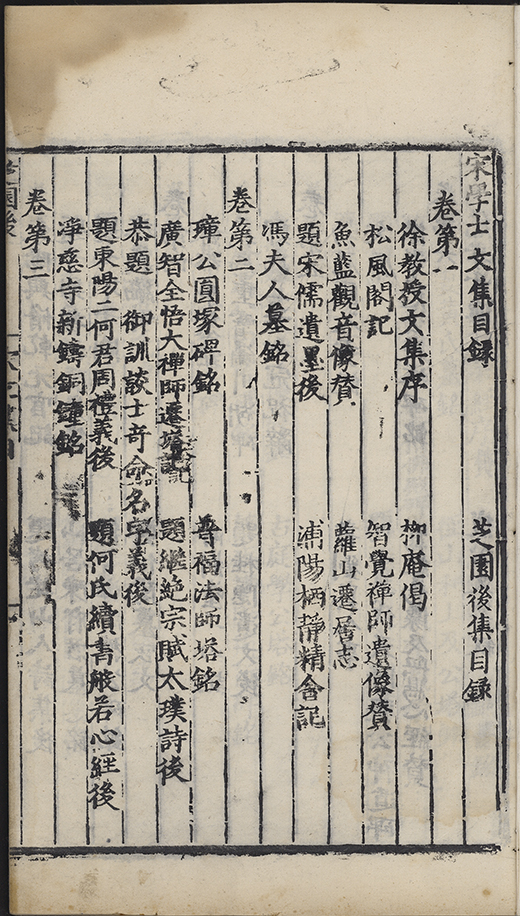 宋學士文集目録 芝園後集目録
卷第一
徐教授文集序 柳庵偈
松風閣記 智覺禪師遺像贊
魚藍觀音像賛 蘿山遷居志
題宋儒遺墨後 浦陽栖靜精舍記
馮夫人墓銘
卷第二
璋公圓塚碑銘 普福法師塔銘
廣智全悟大禪師遷塔記 題繼絶宗賦太璞詩後
恭題 御訓談士奇命名字義後
題東陽二何君周禮義後 題何氏續書般若心經後
淨慈寺新鑄銅鐘銘
卷第三